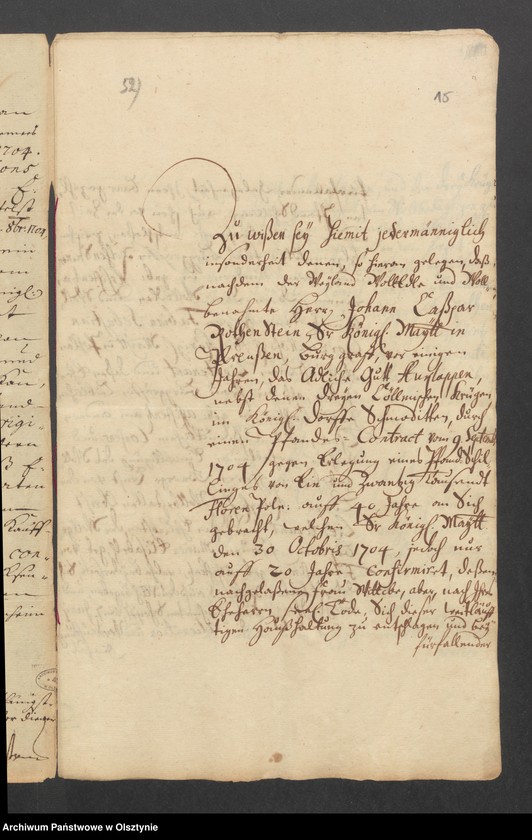 52)
15
Zu wißen sey hiemit jedermänniglich
insonderheit denen, so hieran gelegen, daß,
nachdem der Weyland WollEdle und Woll-
benahmte Herr, Johann Caßpar
Rothenstein, Sr Königl: Maytt in
Preußen, Burggraff, vor einigen
Jahren, das Adliche Gutt Auglappen,
nebst denen dreyen Cöllmischen Krügen,
im Königl: Dorffe Schmoditten, durch
einen Pfandes-Contract vom 9 Septembr:
1704, gegen Erlegung eines Pfand Schil-
linges von Ein und Zwantzig Tausendt
Floren Poln: auff 40 Jahre an Sich
gebracht, welchen Sr Königl: Maytt
den 30 Octobris 1704, jedoch nur
auff 20 Jahre confirmiret, deßen
nachgelaßene Frau Wittibe, aber, nach Ihres
Eheherrn seel: Tode, Sich dieser weitläuff-
tigen Haußhaltung zu entschlagen und bey
fürfallender
Archiwum Państwowe w Olsztynie